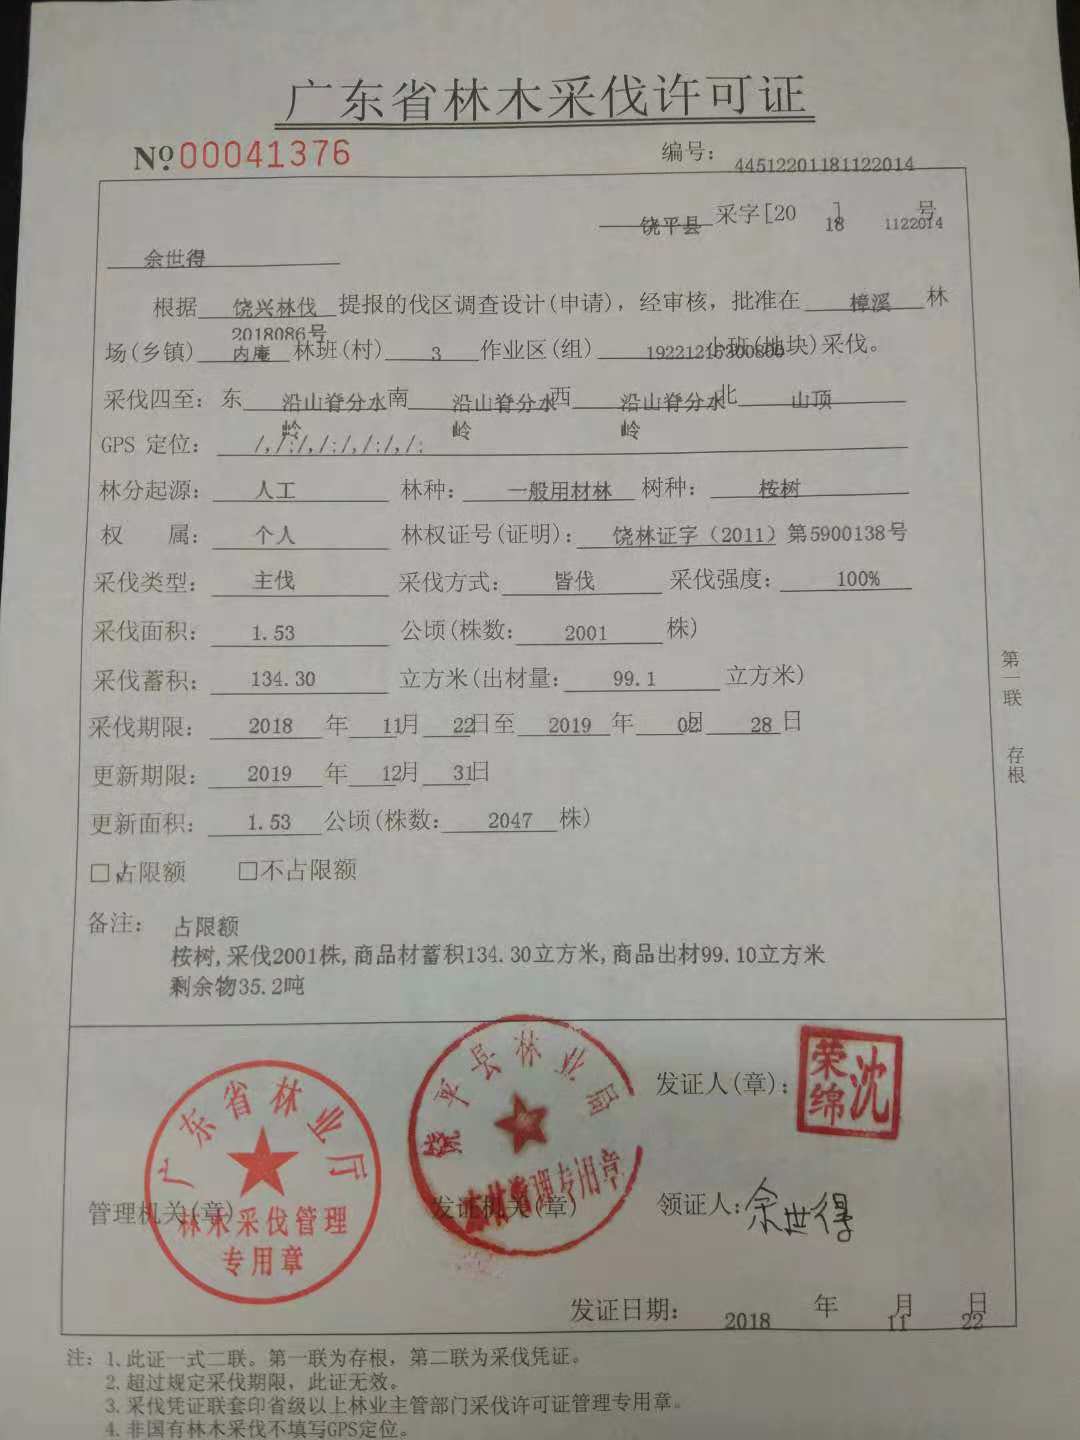 广东省林木采伐许可证
№00041376 编号: 44512201181122014
饶平县 采字[20 18 ] 1122014 号
余世得
根据 饶兴林伐2018086号 提报的伐区调查设计(申请), 经审核, 批准在 樟溪 林
场(乡镇) 内庵 林班(村) 3 作业区(组) 19221215300800 小班(地块)采伐。
采伐四至: 东 沿山脊分水岭 南 沿山脊分水岭 西 沿山脊分水岭 北 山顶
GPS 定位: /,/:/,/:/,/:/,/:
林分起源: 人工 林种: 一般用材林 树种: 桉树
权 属: 个人 林权证号(证明): 饶林证字（2011）第5900138号
采伐类型: 主伐 采伐方式: 皆伐 采伐强度: 100%
采伐面积: 1.53 公顷(株数: 2001 株)
采伐蓄积: 134.30 立方米(出材量: 99.1 立方米)
采伐期限: 2018 年 11月 22日至 2019 年 02月 28日
更新期限: 2019 年 12月 31日
更新面积: 1.53 公顷(株数: 2047 株)
□占限额 □不占限额
备注: 占限额
桉树,采伐2001株,商品材蓄积134.30立方米,商品出材99.10立方米
剩余物35.2吨
第一联 存根
广东省林业厅
林木采伐管理
专用章
管理机关(章)
饶平县林业局
管理专用章
发证机关(章)
发证人(章): 沈荣绵
领证人: 余世得
发证日期: 2018 年 11 月 22 日
注: 1.此证一式二联。第一联为存根, 第二联为采伐凭证。
2.超过规定采伐期限, 此证无效。
3.采伐凭证联套印省级以上林业主管部门采伐许可证管理专用章。
4.非国有林木采伐不填写GPS定位。